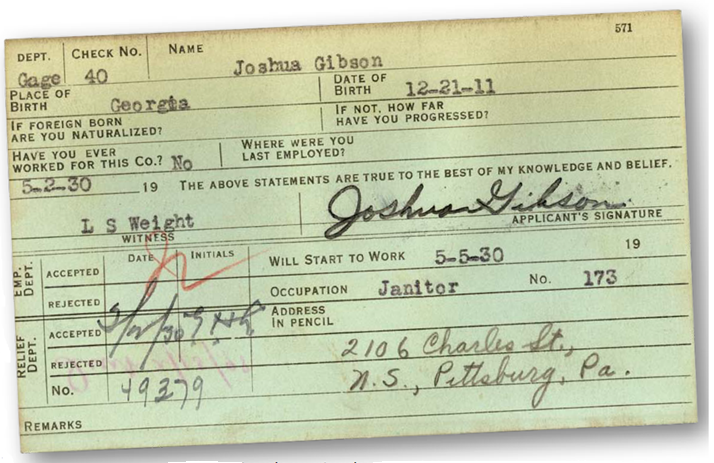 571
DEPT. CHECK NO. NAME
Gage 40 Joshua Gibson
PLACE OF BIRTH Georgia DATE OF BIRTH 12-21-11
IF FOREIGN BORN ARE YOU NATURALIZED? IF NOT, HOW FAR HAVE YOU PROGRESSED?
HAVE YOU EVER WORKED FOR THIS CO.? No WHERE WERE YOU LAST EMPLOYED?
5-2-30 19 THE ABOVE STATEMENTS ARE TRUE TO THE BEST OF MY KNOWLEDGE AND BELIEF.
L S Weight Joshua Gibson
WITNESS APPLICANT'S SIGNATURE
DATE INITIALS
EMP. DEPT. ACCEPTED WILL START TO WORK 5-5-30 19
REJECTED OCCUPATION Janitor No. 173
RELIEF DEPT. ACCEPTED ADDRESS IN PENCIL
REJECTED 2106 Charles St.,
No. 49379 N.S., Pittsburg, Pa.
REMARKS